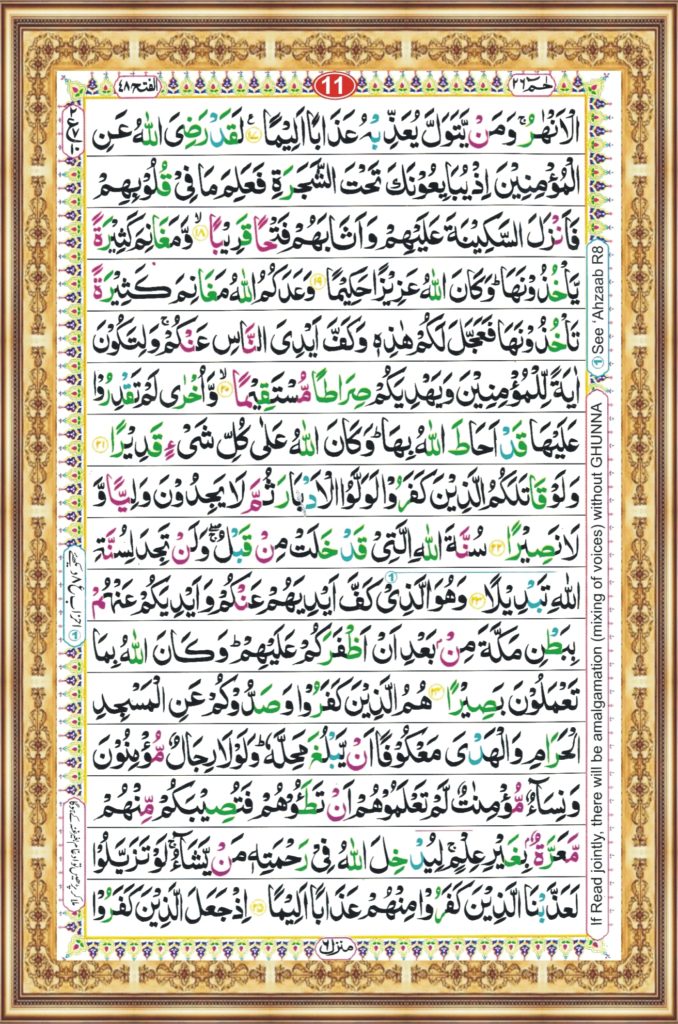 الفتح ٤٨
11
حٰمٓ ٢٦
الْاَنْهٰرُ ۚ وَمَنْ يَّتَوَلَّ يُعَذِّبْهُ عَذَابًا اَلِيْمًا ۟ ١٧ لَقَدْ رَضِيَ اللّٰهُ عَنِ
الْمُؤْمِنِيْنَ اِذْ يُبَايِعُوْنَكَ تَحْتَ الشَّجَرَةِ فَعَلِمَ مَا فِيْ قُلُوْبِهِمْ
فَاَنْزَلَ السَّكِيْنَةَ عَلَيْهِمْ وَاَثَابَهُمْ فَتْحًا قَرِيْبًا ۙ ١٨ وَّمَغَانِمَ كَثِيْرَةً
يَّاْخُذُوْنَهَا ؕ وَكَانَ اللّٰهُ عَزِيْزًا حَكِيْمًا ١٩ وَعَدَكُمُ اللّٰهُ مَغَانِمَ كَثِيْرَةً
تَاْخُذُوْنَهَا فَعَجَّلَ لَكُمْ هٰذِهٖ وَكَفَّ اَيْدِيَ النَّاسِ عَنْكُمْ ۚ وَلِتَكُوْنَ
اٰيَةً لِّلْمُؤْمِنِيْنَ وَيَهْدِيَكُمْ صِرَاطًا مُّسْتَقِيْمًا ۙ ٢٠ وَّاُخْرٰى لَمْ تَقْدِرُوْا
عَلَيْهَا قَدْ اَحَاطَ اللّٰهُ بِهَا ؕ وَكَانَ اللّٰهُ عَلٰى كُلِّ شَيْءٍ قَدِيْرًا ٢١
وَلَوْ قَاتَلَكُمُ الَّذِيْنَ كَفَرُوْا لَوَلَّوُا الْاَدْبَارَ ثُمَّ لَا يَجِدُوْنَ وَلِيًّا وَّ
لَا نَصِيْرًا ٢٢ سُنَّةَ اللّٰهِ الَّتِيْ قَدْ خَلَتْ مِنْ قَبْلُ ۖۚ وَلَنْ تَجِدَ لِسُنَّةِ
اللّٰهِ تَبْدِيْلًا ٢٣ وَهُوَ الَّذِيْ كَفَّ اَيْدِيَهُمْ عَنْكُمْ وَاَيْدِيَكُمْ عَنْهُمْ
بِبَطْنِ مَكَّةَ مِنْۢ بَعْدِ اَنْ اَظْفَرَكُمْ عَلَيْهِمْ ؕ وَكَانَ اللّٰهُ بِمَا
تَعْمَلُوْنَ بَصِيْرًا ٢٤ هُمُ الَّذِيْنَ كَفَرُوْا وَصَدُّوْكُمْ عَنِ الْمَسْجِدِ
الْحَرَامِ وَالْهَدْيَ مَعْكُوْفًا اَنْ يَّبْلُغَ مَحِلَّهٗ ؕ وَلَوْلَا رِجَالٌ مُّؤْمِنُوْنَ
وَنِسَآءٌ مُّؤْمِنٰتٌ لَّمْ تَعْلَمُوْهُمْ اَنْ تَطَـُٔوْهُمْ فَتُصِيْبَكُمْ مِّنْهُمْ
مَّعَرَّةٌۢ بِغَيْرِ عِلْمٍ ۚ لِيُدْخِلَ اللّٰهُ فِيْ رَحْمَتِهٖ مَنْ يَّشَآءُ ۚ لَوْ تَزَيَّلُوْا
لَعَذَّبْنَا الَّذِيْنَ كَفَرُوْا مِنْهُمْ عَذَابًا اَلِيْمًا ٢٥ اِذْ جَعَلَ الَّذِيْنَ كَفَرُوْا
منزل ٦
① See 'Ahzaab R8
If Read jointly, there will be amalgamation (mixing of voices) without GHUNNA